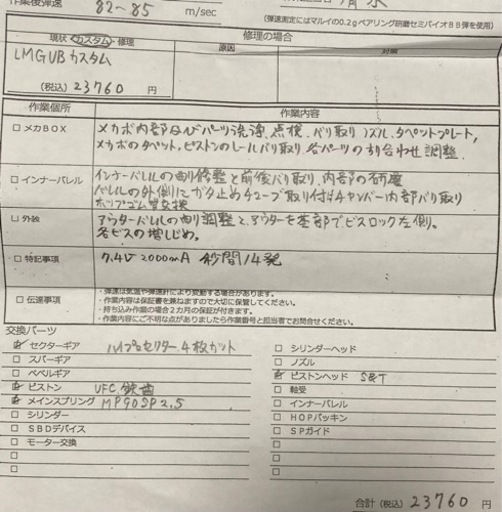 作業後弾速 82～85 m/sec
(弾速測定にはマルイの0.2gベアリング研磨セミバイオBB弾を使用)
現状 カスタム 修理
修理の場合
原因
対策
LMGUBカスタム
(税込) 23760 円
作業個所
作業内容
□ メカBOX
メカボ内部及びパーツ洗浄、点検、バリ取り ノズル、タペットプレート、
メカボのタペット、ピストンのレールバリ取り、各パーツのすり合わせ調整。
□ インナーバレル
インナーバレルの曲り修整と前後バリ取り、内部の研磨
バレルの外側にガタ止めチューブ取り付け&チャンバー内部バリ取り
ホップゴム箇交換
□ 外装
アウターバレルの曲り調整と、アウターを基部でビスロック左側。
各ビスの増しじめ。
□ 特記事項
7.4V 2000mA 秒間14発
□ 伝達事項
・弾速は気温や弾速計により変動する場合があります。
・作業内容は保証書を兼ねますので大切に保管してください。
・持ち込み作業の場合2カ月の保証が付きます。
・作業内容にご不明な点がありましたら作業番号と担当者でお問合せください。
交換パーツ
セクターギア ハイプロセクター4枚カット
□ スパーギア
□ ベベルギア
ピストン UFC 鉄歯
メインスプリング MP90SP2.5
□ シリンダー
□ SBDデバイス
□ モーター交換
□
□
□ シリンダーヘッド
□ ノズル
ピストンヘッド S&T
□ 軸受
□ インナーバレル
□ HOPパッキン
□ SPガイド
□
□
□
合計 (税込) 23760 円